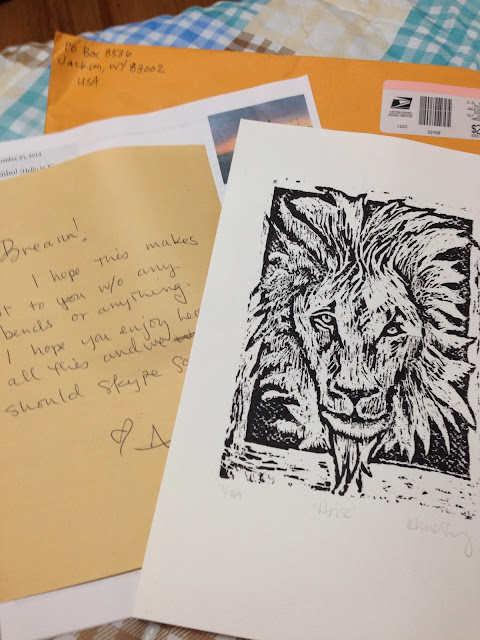 PO Box 8536
Jackson, WY 83002
USA
1000
$2
Breann!
I hope this makes
it to you w/o any
bends or anything.
I hope you enjoy
all this and we
should skype
♡ A
"Arise"